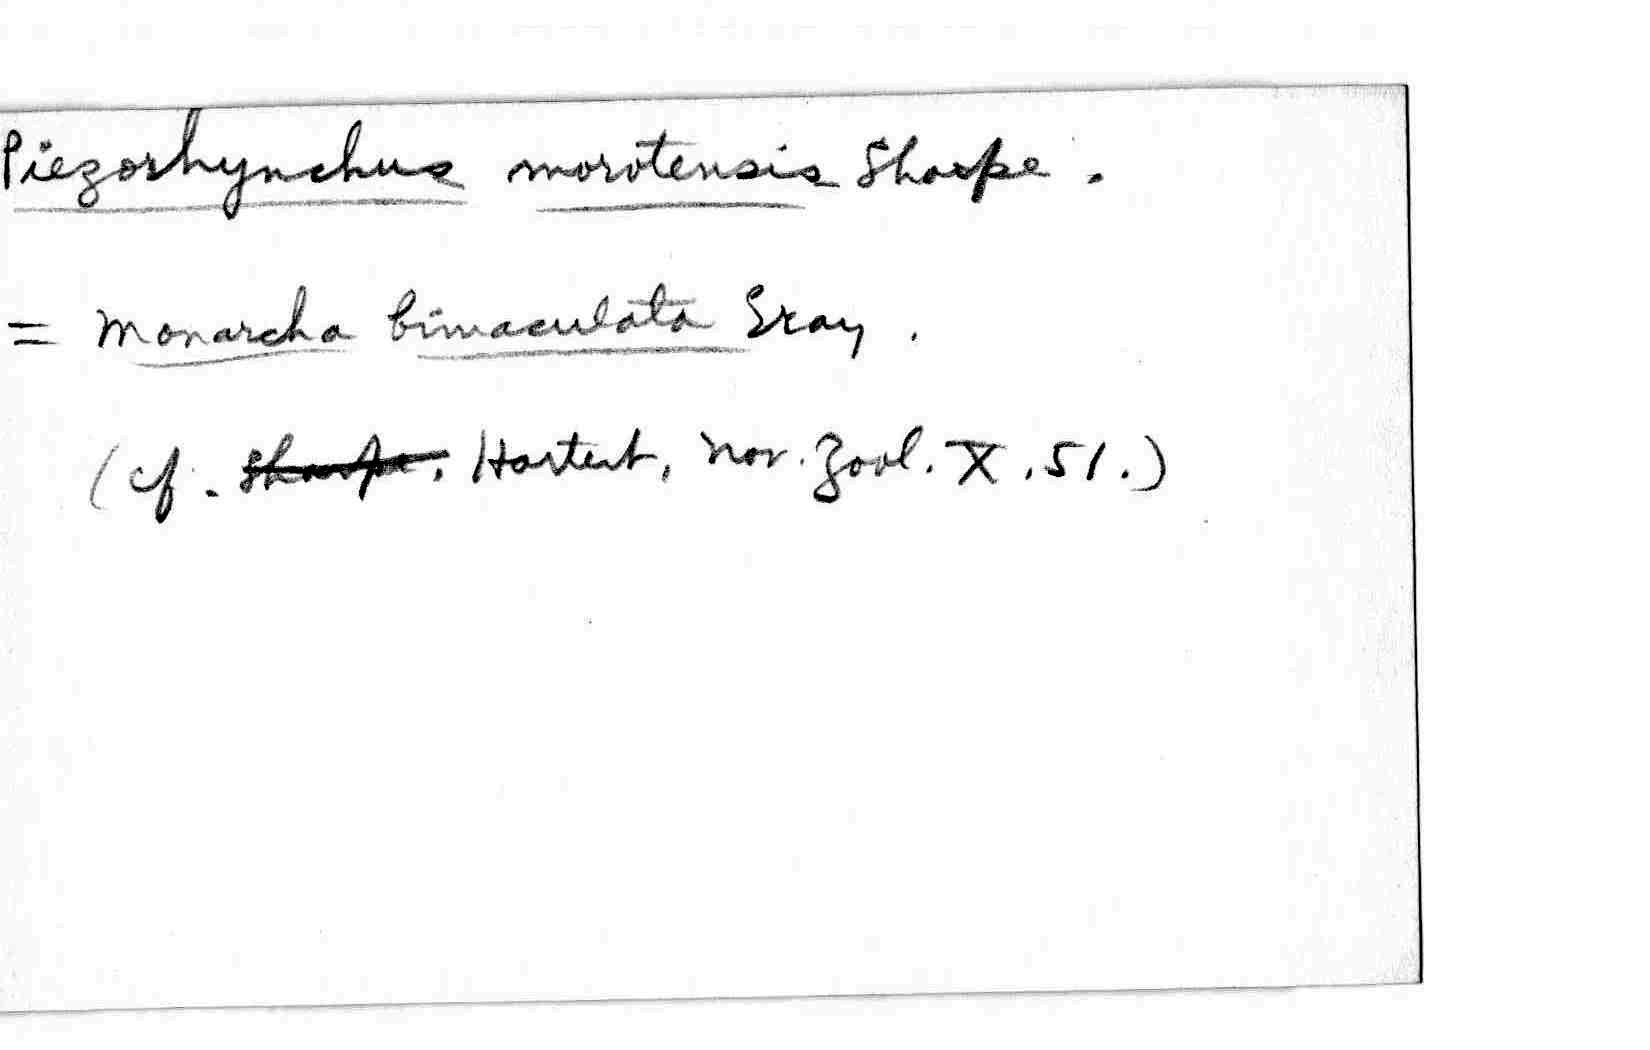 Piezorhynchus morotensis Sharpe.
= Monarcha bimaculata Gray.
(cf. Sharpe. Hartert, Nov. Zool. X. 51.)